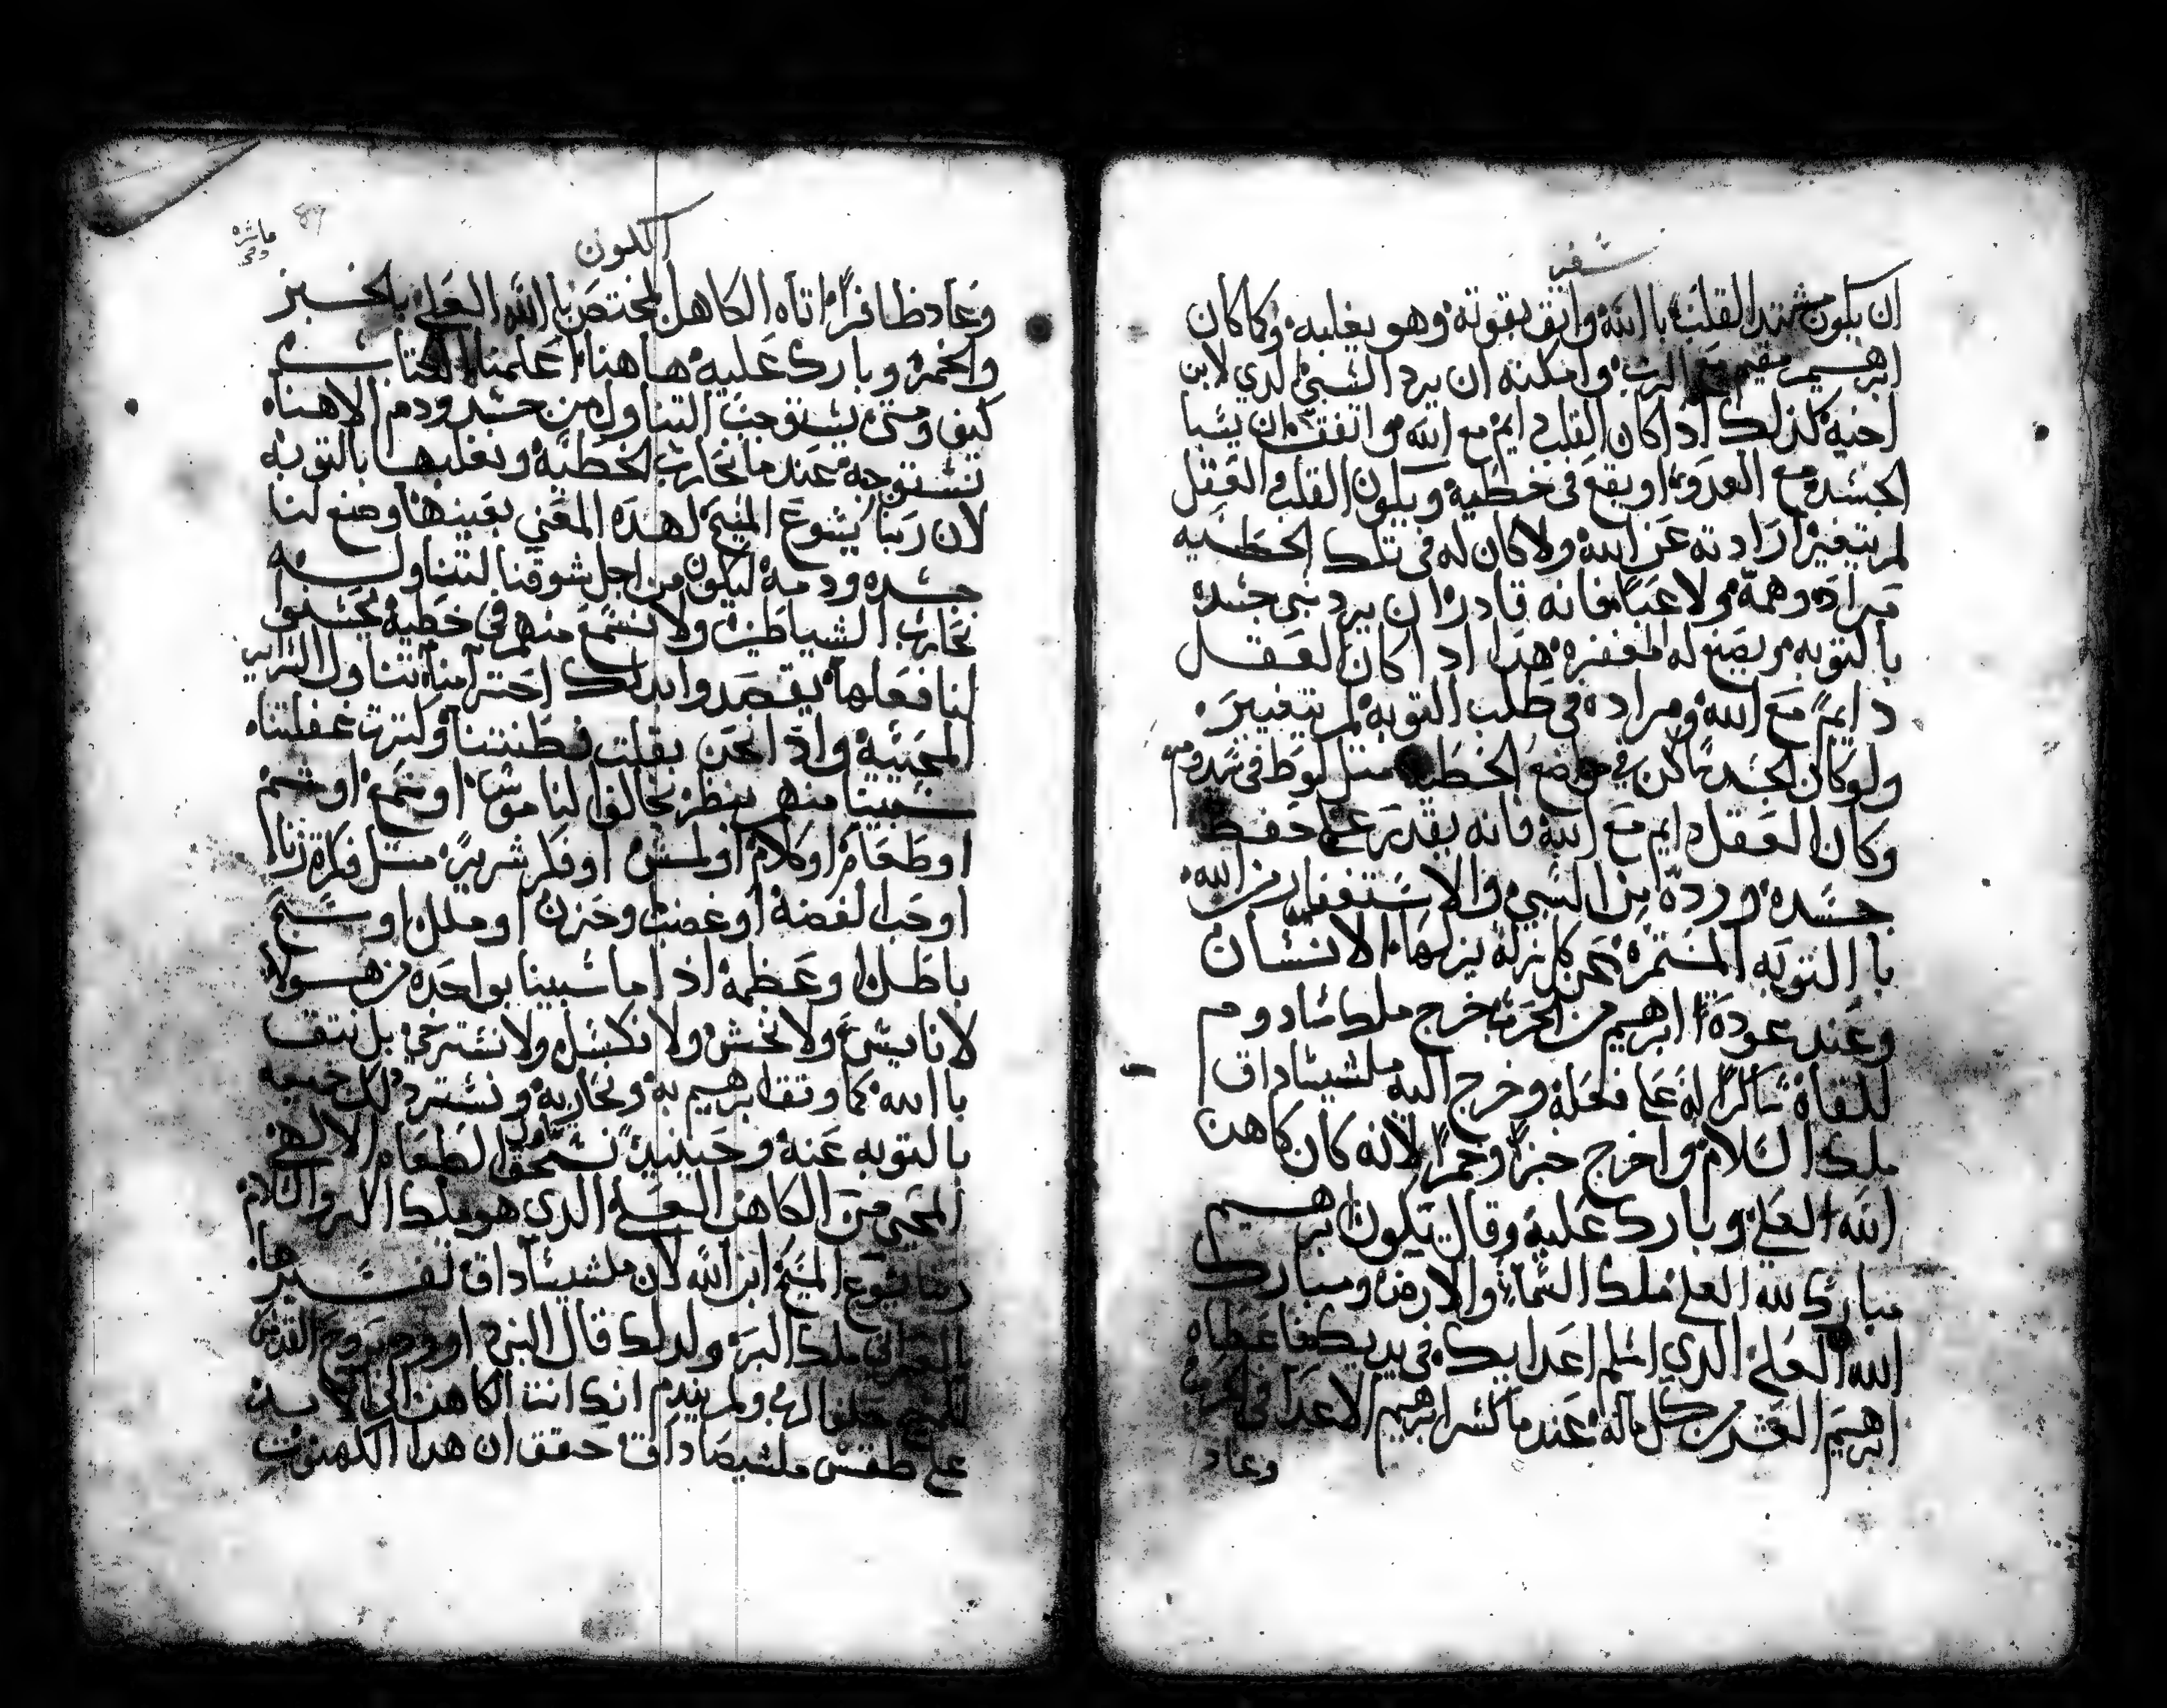 سفر
ان يكون مشتد القلب باالله واثق بقوته وهو يغلبه وكما كان
ابرهيم مقيم مع الرب وامكنه ان يرد السبي الدي لابن
اخيه كدلك اذا كان القلب دايم مع الله واتفق ان يسبا
الجسد مع العدو او يقع في خطية ويكون القلب والعقل
لم يتغير ارادته عن الله ولا كان له في تلك الخطية
مراده وهمه ولا فانه قادر ان يرد سبي جسده
بالتوبه ويصنع له المغفره هدا اد اكان العقل
دايم مع الله ومراده في طلب التوبه لم يتغيير
ولو كان الجسد ساكن في مواضع الخطيه متل لوط في سدوم
وكان العقل دايم مع الله فانه يقدر على حفظ
جسده ورده من السبي والاستغفار من الله
باالتوبه المستمره عن كل زله يزلها الانسان
وعند عودة ابرهيم من الحرب خرج ملك سادوم
للقاه شاكرا له على فعله وخرج اليه ملشيساداق
ملك السلام واخرج خبزا وخمرا لانه كان كاهن
الله العلي وبارك عليه وقال يكون ابرهيم
مبارك لله العلي ملك السماء والارض ومبارك
الله العلي الدي اسلم اعدايك في يديك فاعطاه
ابرهيم العشر من كل ماله عند ما كسر ابرهيم الاعدا في الحرب
وعاد
87
الكون
وعاد ظافرا اتاه الكاهن المختص باالله العلي بالخبز
والخمر وبارك عليه هاهنا اعلمنا الكتاب
كيف ومتى يستوجب التناول من جسد ودم الاهنا
نستوجبه عند ما نحارب الخطية ونغلبها بالتوبه
لان ربنا يسوع المسيح لهده المعني بعينها وصنع لنا
جسده ودمه ليكون من اجل شوقنا لتناوله
نحارب الشياطين ولا نسمع منهم في خطية يحسنوا
لنا فعلها يقصدوا بدلك احترامنا تناول السراير
المحييه واذ انحن تقلت فطنتنا وكترت غفلتنا
سبينا منهم بنظر مخالف لنا موسا او سمع او شم
او طعام او كلام او لمس او فكر شرير متل فكرة زنا
او حب الفضة او غضب وحزن او ملل او سبح
باطل او عظمة اذا ما سبينا بواحده من هولا
لا ناييس ولا نخشى ولا نكسل ولا نسترخي بل نتق
باالله كما وتق ابرهيم به ونحاربه ونسترد دلك جميعه
بالتوبه عنه وحينيد نستحق الطعام الالهي
المحيي من الكاهن العلي الدي هو ملك البر والسلام
ربنا يسوع المسيح ابن الله لان ملشيساداق تفسيرها
بالعبراني ملك البر ولدلك قال النبي داوود بروح القدس
للمسيح حلف الرب ولم يندم انك انت الكاهن الى الابد
على طقس ملشيصاداق حقق ان هدا الكهنوت